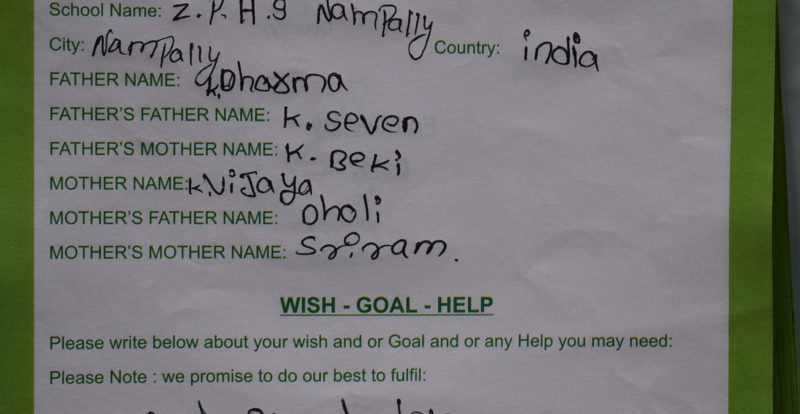 School Name: Z.P.H.S Nampally
City: Nampally Country: india
FATHER NAME: K.Dharma
FATHER'S FATHER NAME: K. Seven
FATHER'S MOTHER NAME: K. Beki
MOTHER NAME: K.Vijaya
MOTHER'S FATHER NAME: Dholi
MOTHER'S MOTHER NAME: Sriram.
WISH - GOAL - HELP
Please write below about your wish and or Goal and or any Help you may need:
Please Note : we promise to do our best to fulfil: